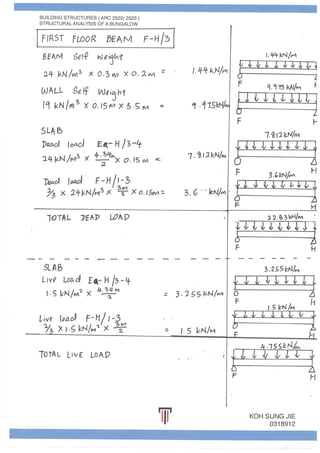 BUILDING STRUCTURES ( ARC 2522/ 2523 )
STRUCTURAL ANALYSIS OF A BUNGALOW
FIRST FLOOR BEAM F-H/3
BEAM Self weight
24 kN/m³ x 0.3m x 0.2m = 1.44 kN/m
1.44 kN/m
F H
WALL Self Weight
19 kN/m³ x 0.15m x 3.5m = 9.975kN/m
9.975 kN/m
F H
SLAB
Dead load Ea-H/3-4
24 kN/m³ x 4.34m/2 x 0.15m = 7.812kN/m
7.812kN/m
F H
Dead load F-H/1-3
2/3 x 24kN/m³ x 3m/2 x 0.15m = 3.6 kN/m
3.6kN/m
F H
TOTAL DEAD LOAD
22.83kN/m
F H
SLAB
Live Load Ea-H/3-4
1.5 kN/m² x 4.34m/2 = 3.255 kN/m
3.255kN/m
F H
Live load F-H/1-3
2/3 x 1.5 kN/m² x 3m/2 = 1.5 kN/m
1.5 kN/m
F H
TOTAL LIVE LOAD
4.755kN/m
F H
KOH SUNG JIE
0318912